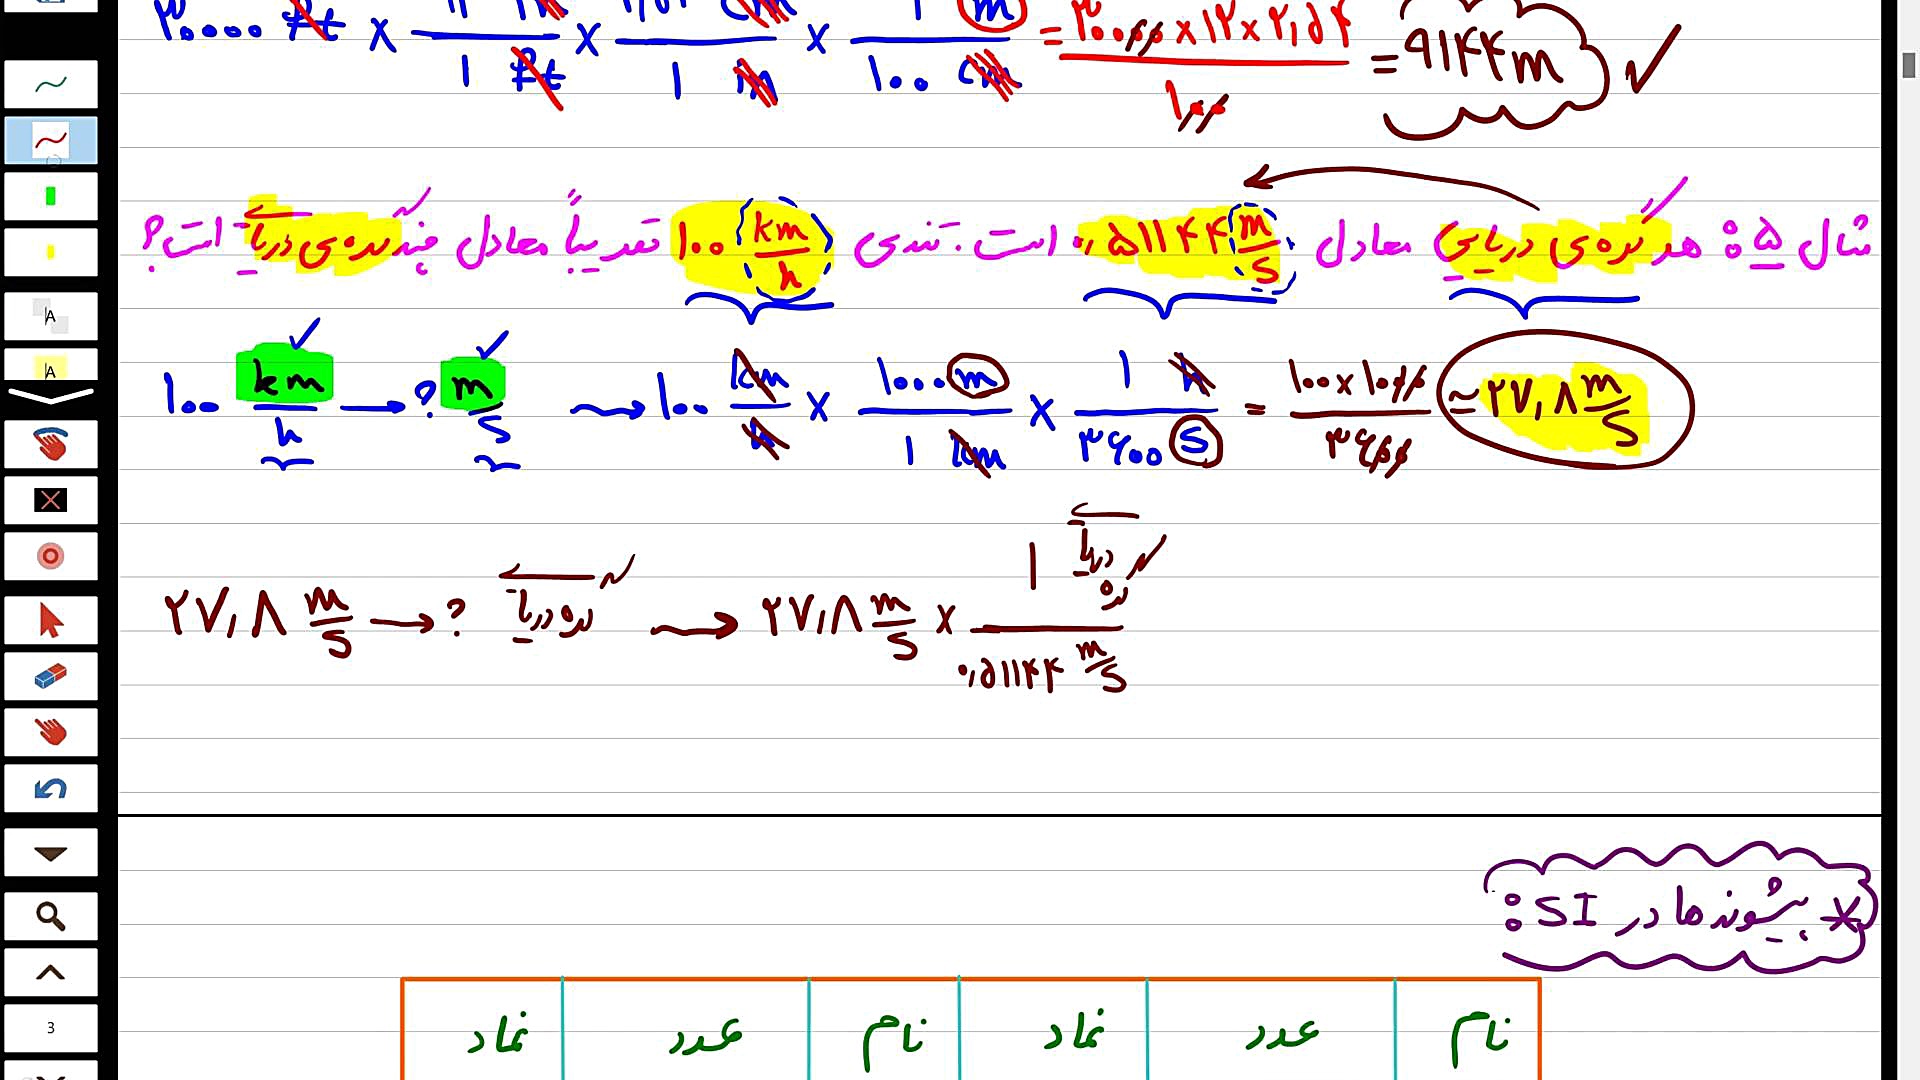 ۳۰۰۰۰ ft × ۱۲ in / ۱ ft × ۲٫۵۴ cm / ۱ in × ۱ m / ۱۰۰ cm = ۳۰۰۰۰ × ۱۲ × ۲٫۵۴ / ۱۰۰ = ۹۱۴۴ m ✓
مثال ۵ : هر گره‌ی دریایی معادل ۰٫۵۱۱۴۴ m/s است. تندی ۱۰۰ km/h تقریباً معادل چند گره‌ی دریایی است؟
۱۰۰ km/h → ? m/s ⇝ ۱۰۰ km/h × ۱۰۰۰ m / ۱ km × ۱ h / ۳۶۰۰ s = ۱۰۰ × ۱۰۰۰ / ۳۶۰۰ ≃ ۲۷٫۸ m/s
۲۷٫۸ m/s → ? گره دریایی ⇝ ۲۷٫۸ m/s × ۱ گره دریایی / ۰٫۵۱۱۴۴ m/s
* پیشوندها در SI :
نام عدد نماد نام عدد نماد
A
A
3